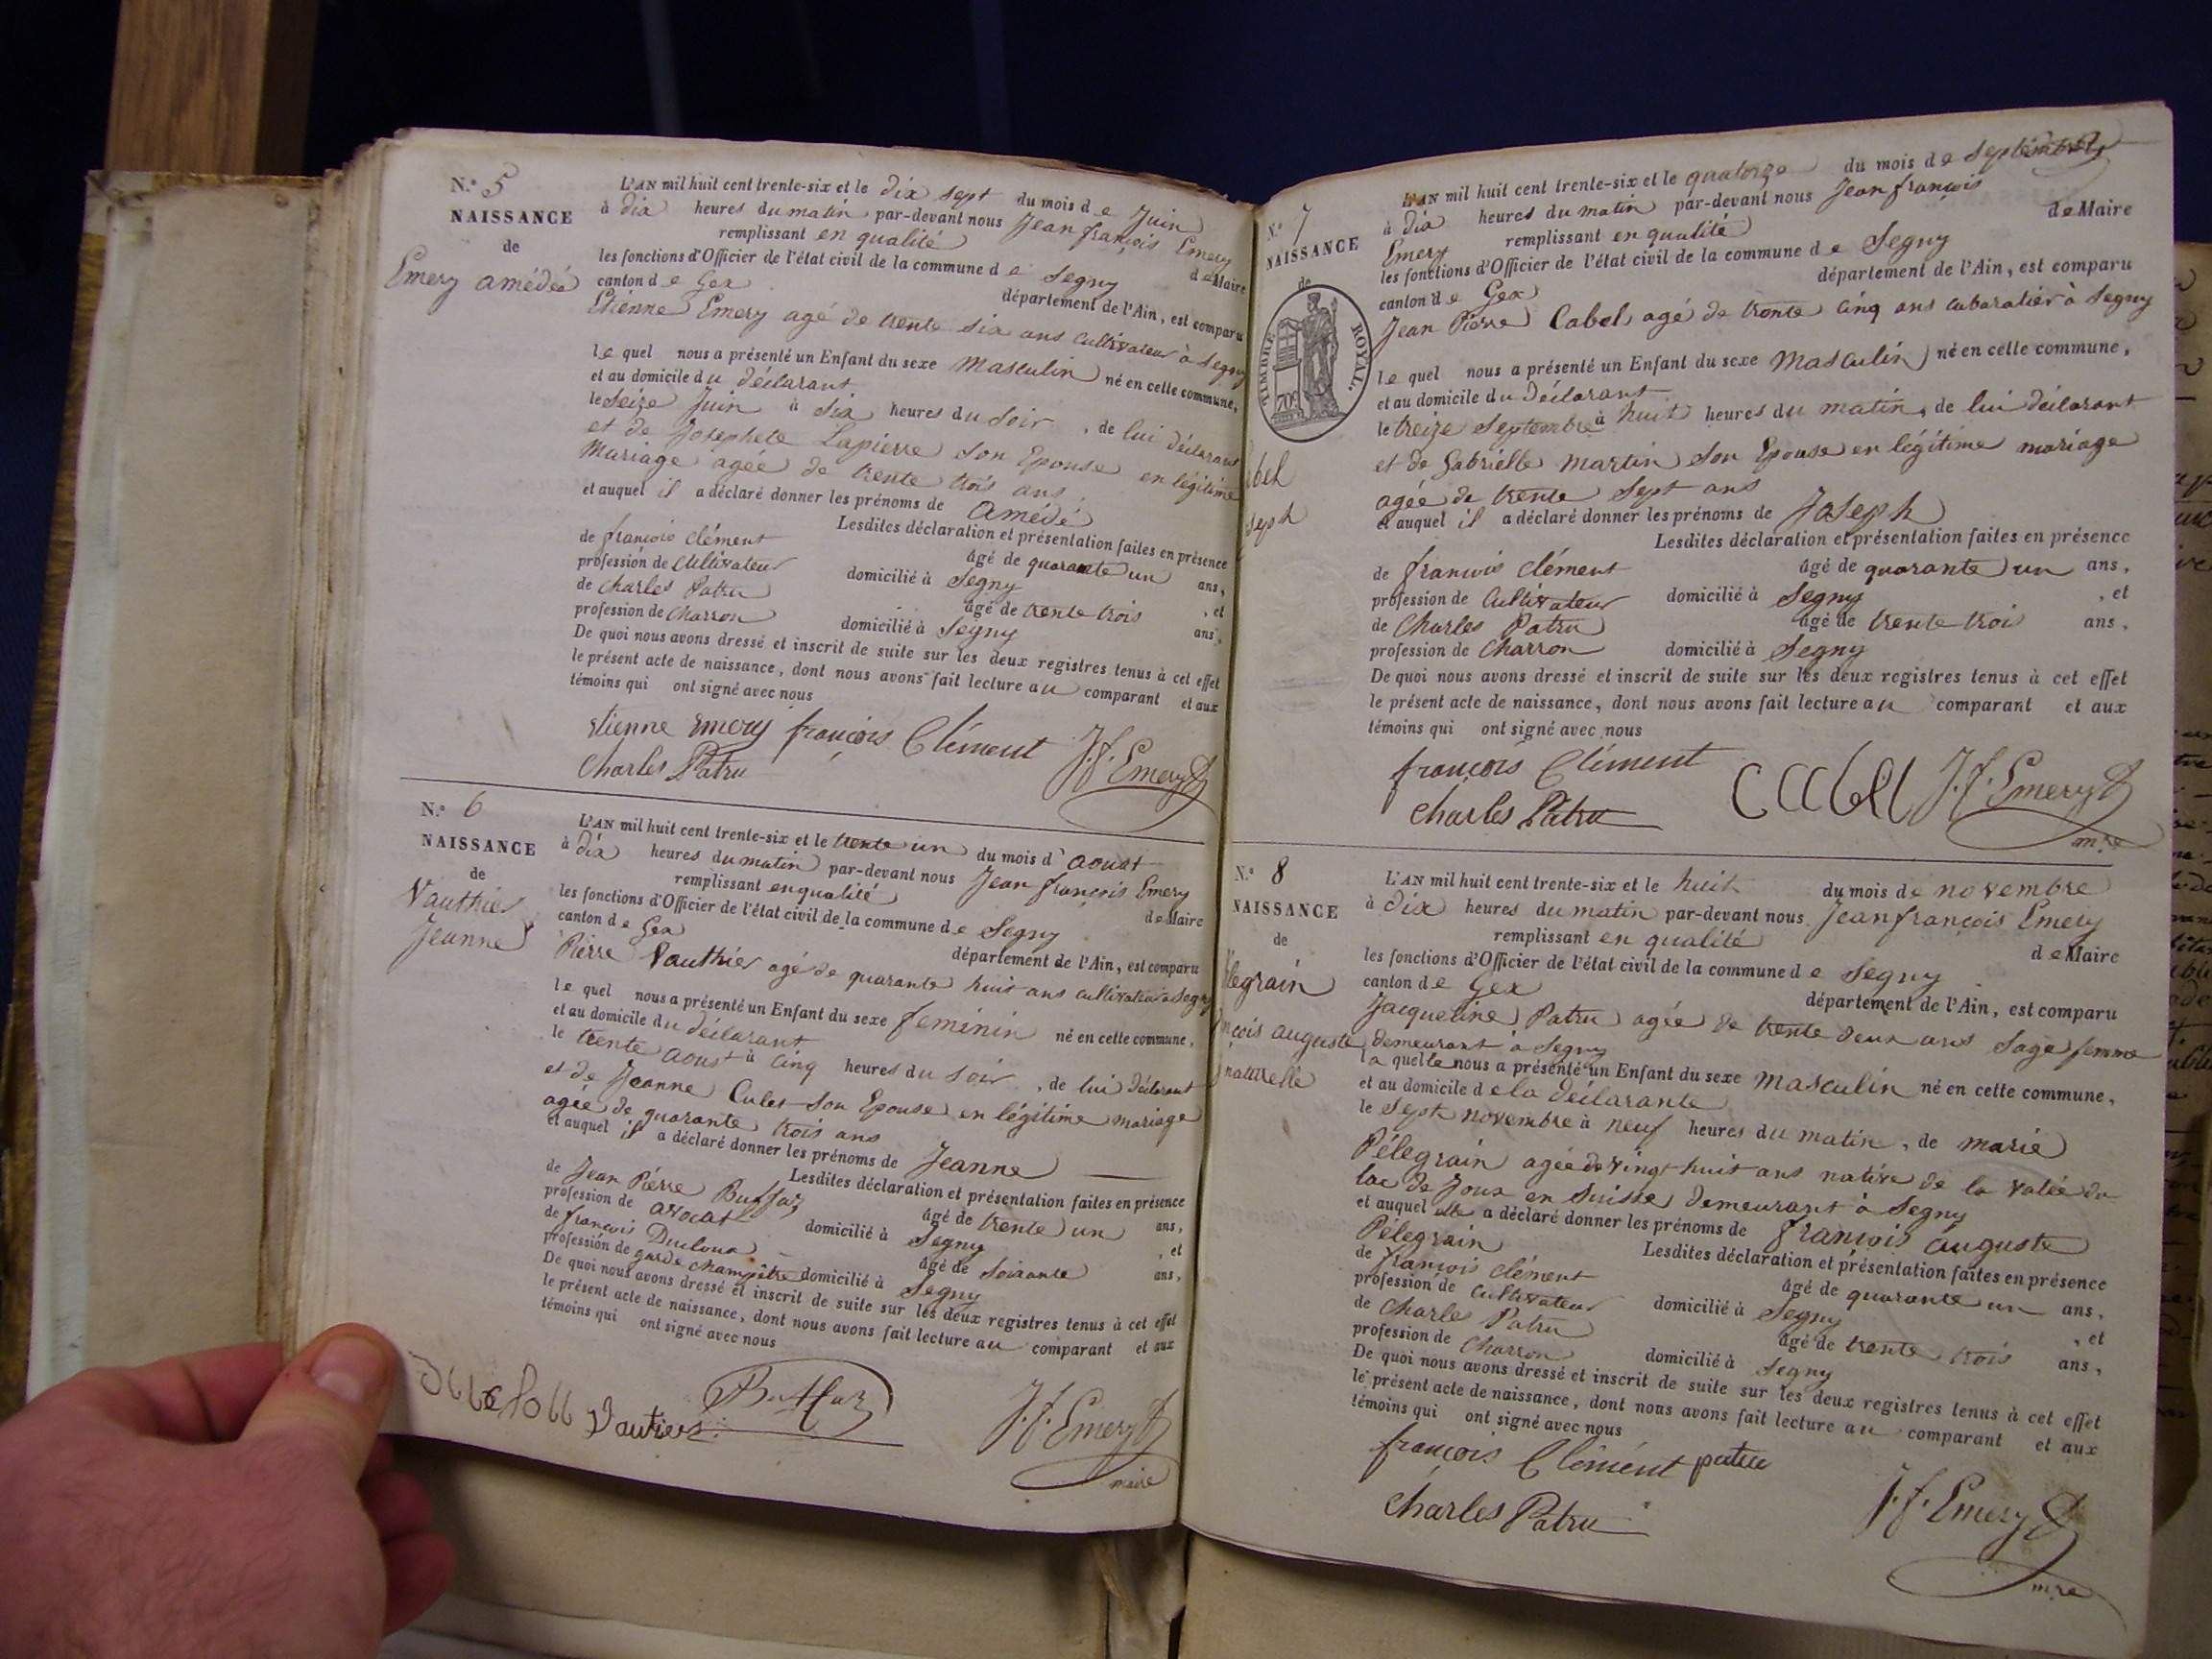 N.º 5
NAISSANCE
de
Emery amédée
L'AN mil huit cent trente-six et le dix sept du mois de Juin
à dix heures du matin par-devant nous Jean françois Emery
remplissant en qualité de Maire
les fonctions d'Officier de l'état civil de la commune de Segny
canton de Gex département de l'Ain, est comparu
Etienne Emery agé de trente six ans cultivateur à Segny
le quel nous a présenté un Enfant du sexe Masculin né en cette commune,
et au domicile du déclarant
le Seize Juin à Six heures du Soir, de lui déclarant
et de Josephete Lapierre son Epouse en légitime
Mariage agée de trente trois ans.
et auquel il a déclaré donner les prénoms de Amédé
Lesdites déclaration et présentation faites en présence
de françois clément âgé de quarante un ans,
profession de cultivateur domicilié à Segny, et
de Charles Patru âgé de trente trois ans,
profession de charron domicilié à Segny
De quoi nous avons dressé et inscrit de suite sur les deux registres tenus à cet effet
le présent acte de naissance, dont nous avons fait lecture au comparant et aux
témoins qui ont signé avec nous
etienne emery françois Clément J.f. Emery
Charles Patru
N.º 6
NAISSANCE
de
Vauthier
Jeanne
L'AN mil huit cent trente-six et le trente un du mois d'aoust
à dix heures du matin par-devant nous Jean françois Emery
remplissant en qualité de Maire
les fonctions d'Officier de l'état civil de la commune de Segny
canton de Gex département de l'Ain, est comparu
Pierre Vauthier agé de quarante huit ans cultivateur a Segny
le quel nous a présenté un Enfant du sexe feminin né en cette commune,
et au domicile du déclarant
le trente aoust à cinq heures du soir, de lui déclarant
et de Jeanne Cules son Epouse en légitime mariage
agée de quarante trois ans
et auquel il a déclaré donner les prénoms de Jeanne
Lesdites déclaration et présentation faites en présence
de Jean Pierre Buffaz âgé de trente un ans,
profession de avocat domicilié à Segny, et
de françois Ducloux âgé de Soixante ans,
profession de garde champêtre domicilié à Segny
De quoi nous avons dressé et inscrit de suite sur les deux registres tenus à cet effet
le présent acte de naissance, dont nous avons fait lecture au comparant et aux
témoins qui ont signé avec nous
Vautier Buffaz J.f. Emery
maire
N.º 7
NAISSANCE
de
TIMBRE ROYAL.
70c
abel
seph
L'AN mil huit cent trente-six et le quatorze du mois de Septembre
à dix heures du matin par-devant nous Jean françois
Emery remplissant en qualité de Maire
les fonctions d'Officier de l'état civil de la commune de Segny
canton de Gex département de l'Ain, est comparu
Jean Pierre Cabel agé de trente cinq ans cabaratier à Segny
le quel nous a présenté un Enfant du sexe Masculin né en cette commune,
et au domicile du Déclarant
le treize Septembre à huit heures du matin, de lui déclarant
et de Gabrielle Martin son Epouse en légitime mariage
agée de trente Sept ans
et auquel il a déclaré donner les prénoms de Joseph
Lesdites déclaration et présentation faites en présence
de françois clément âgé de quarante un ans,
profession de Cultivateur domicilié à Segny, et
de Charles Patru âgé de trente trois ans,
profession de Charron domicilié à Segny
De quoi nous avons dressé et inscrit de suite sur les deux registres tenus à cet effet
le présent acte de naissance, dont nous avons fait lecture au comparant et aux
témoins qui ont signé avec nous
françois Clément Cabel J.f. Emery
Charles Patru
m.re
N.º 8
NAISSANCE
de
legrain
nçois auguste
naturelle
L'AN mil huit cent trente-six et le huit du mois de novembre
à Dix heures du matin par-devant nous Jean françois Emery
remplissant en qualité de Maire
les fonctions d'Officier de l'état civil de la commune de Segny
canton de Gex département de l'Ain, est comparu
Jacqueline Patru agée de trente deux ans Sage femme
demeurant à Segny
la quelle nous a présenté un Enfant du sexe masculin né en cette commune,
et au domicile de la Déclarante
le Sept novembre à neuf heures du matin, de marie
Pélegrain agée de vingt huit ans native de la valée du
lac de Joux en Suisse demeurant à Segny
et auquel elle a déclaré donner les prénoms de françois auguste
Pélegrain Lesdites déclaration et présentation faites en présence
de françois clément âgé de quarante un ans,
profession de cultivateur domicilié à Segny, et
de Charle Patru âgé de trente trois ans,
profession de Charron domicilié à Segny
De quoi nous avons dressé et inscrit de suite sur les deux registres tenus à cet effet
le présent acte de naissance, dont nous avons fait lecture au comparant et aux
témoins qui ont signé avec nous
françois Clément patru
Charles Patru J.f. Emery
m.re